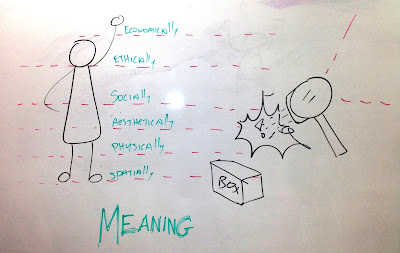 ECONOMICAlly
EThICAlly
SOCIAlly
AESThETICAlly
PhYSICAlly
SPATIAlly
BOX
MEANING